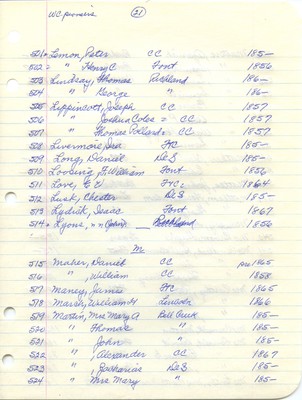 WC pioneers
21
501 Lemon, Peter CC 185-
502 " Henry C Font 1856
503 Lindsay, Thomas Richland 186-
504 " George " 186-
505 Lippincott, Joseph CC 1857
506 " Joshua Coles = CC 1857
507 " Thomas Pollard = CC 1857
508 Livermore, Ira FtC 185-
509 Long, Daniel DeS 185-
510 William Font 1856
511 Love, FtC 1864
512 Lusk, Chester DeS 185-
513 Lydick, Isaac Font 1867
514 Lyons, Richland 1856
M
515 Maher, Daniel CC pre 1865
516 " , William CC 1858
517 Maney, James FtC 1865
518 William H Lincoln 1866
519 Martin, Mrs Mary A Bell Creek 185-
520 " Thomas " 185-
521 " John " 185-
522 " , Alexander CC 1867
523 " , Zacharias DeS 185-
524 " Mrs Mary " 185-